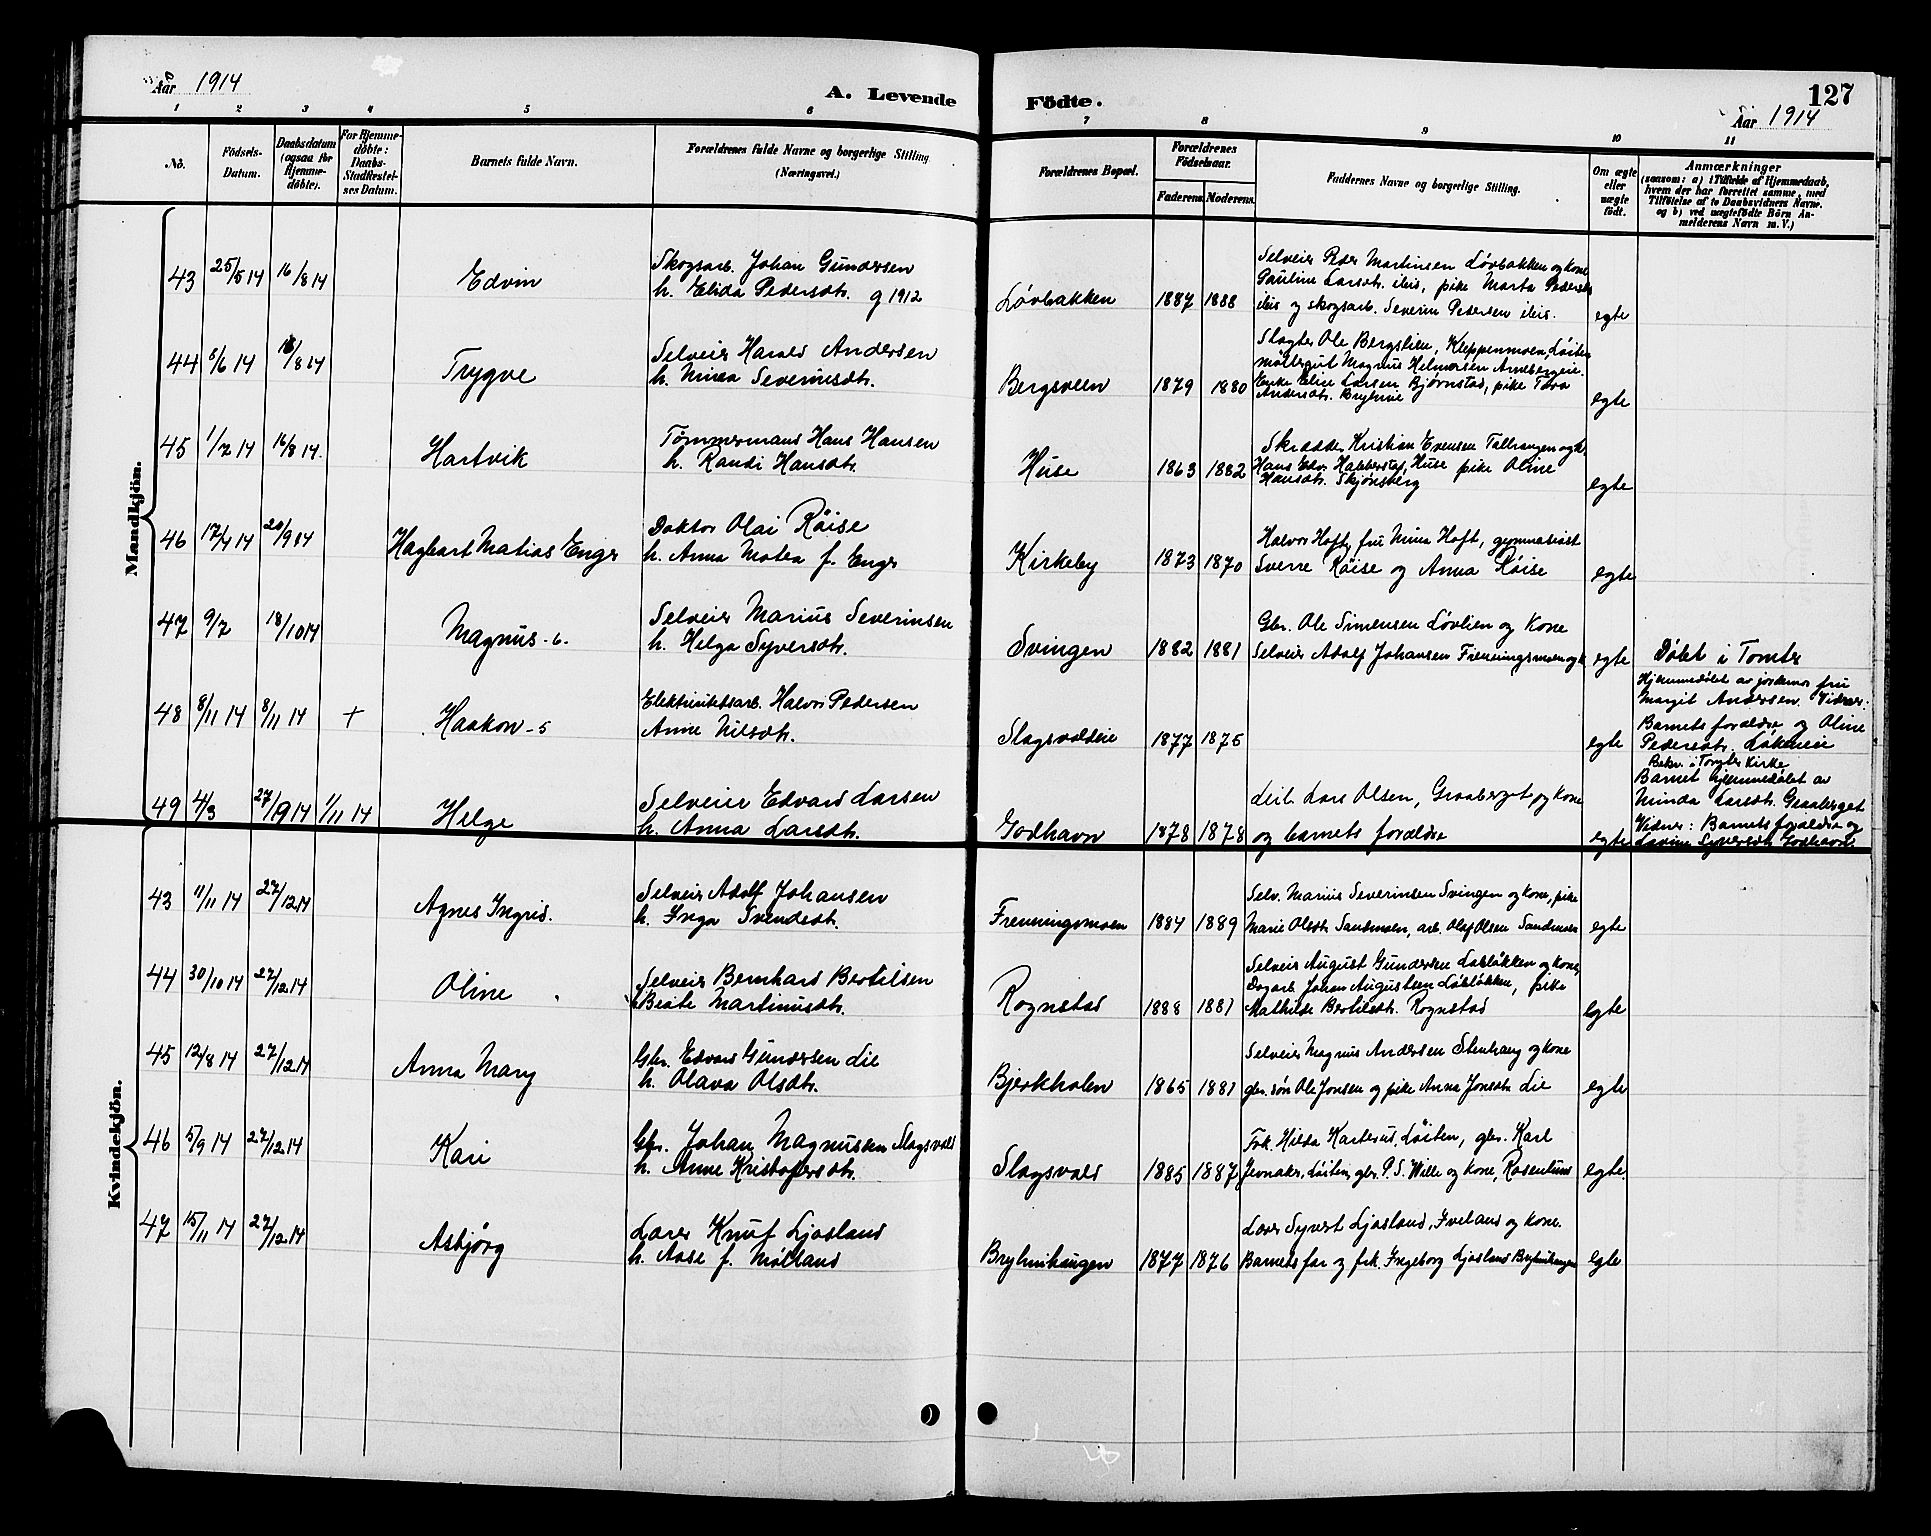 127
Aar 1914
A. Levende Födte.
Aar 1914
1 2 3 4 5 6 7 8 9 10 11
No.
Födsels-Datum.
Daabsdatum (ogsaa for Hjemmedöbte).
For Hjemmedöbte: Daabs-Stadfæstelses Datum.
Barnets fulde Navn.
Forældrenes fulde Navne og borgerlige Stilling (Næringsvei.)
Forældrenes Bopæl.
Forældrenes Födselsaar.
Faderens. Moderens.
Faddernes Navne og borgerlige Stilling.
Om ægte eller uægte födt.
Anmærkninger
(saasom: a) i Tilfælde af Hjemmedaab,
hvem der har forrettet samme, med
Tilföielse af to Daabsvidners Navne.
og b) ved uægtefödte Börn An-
melderens Navn m. V.)
Mandkjön.
43 25/5 14 16/8 14 Edvin
Skogsarb. Johan Gundersen
h. Elida Pedersdtr. g 1912
Løvbakken 1887 1888
Selveier Peder Martinsen Løvbakken og kone
Pauline Larsdtr. ibid, pike Marta Pedersdtr
ibid og skogsarb. Severin Pedersen ibid.
egte
44 8/6 14 16/8 14 Trygve
Selveier Harald Andersen
h. Minda Severinsdtr.
Bergsveen 1879 1880
Slagter Ole Bergslien, Kleppenmoen, Løiten
møllergut Magnus Helmersen Arnebergeie.
Enke Eline Larsen Bjørnstad, pike Tora
Andersdtr. Brylnie
egte
45 1/7 14 16/8 14. Hartvik
Tømmermand Hans Hansen
h. Randi Hansdtr.
Huse 1863 1882
Skrædder Kristian Evensen
Hans Edv. Huse pike Oline
Hansdtr. Skjønsberg
egte
46 17/4 14 20/9 14 Hagbart Matias Enger
Doktor Olai Röise
h. Anna Matea f. Enger
Kirkeby 1873 1870
Halvor Hoft, fru Mina Hoft, gymnasiast
Sverre Röise og Anna Röise
egte
47 9/7 18/10 14 Magnus -6.
Selveier Marius Severinsen
h. Helga Syversdtr.
Svingen 1882 1881
Gbr. Ole Simensen Løvlien og kone
Selveier Adolf Johansen Frenningsmoen og k
egte
Døbt i Tomter
48 8/11 14 8/11 14 + Haakon -5
Elektricitetsarb. Halvor Pedersen
Anne Nilsdtr.
Slagsvoldeie 1877 1875
egte
Hjemmedøbt av jordmor fru
Margit Andersen. Vidner:
Barnets forældre og Oline
Pedersdtr. Løkeneie
49 4/3 27/9 14 1/11 14 Helge
Selveier Edvard Larsen
h. Anna Larsdtr.
Godhavn 1878 1878
Leil. Lars Olsen, Graaberget og kone
og barnets forældre
egte
Bekr. i Tomter Kirke
Barnet hjemmedøbt av
Minda Larsdtr. Graaberget
Vidner: Barnets forældre og
Lovine Syversdtr Godhavn
Kvindekjön.
43 11/11 14 27/12 14 Agnes Ingrid.
Selveier Adolf Johansen
h. Inga Svendsdtr.
Frenningsmoen 1884 1889
Selv. Marius Severinsen Svingen og kone, pike
Marie Olsdtr Sandmoen, arb. Olaf Olsen Sandmoen
egte
44 30/10 14 27/12 14 Oline
Selveier Bernhard Bertilsen
h. Beate Martinusdtr.
Rognstad 1888 1881
Selveier August Gundersen Løbløkken og kone,
Dagarb. Johan Augustsen Løbløkken, pike
Mathilde Bertilsdtr. Rognstad
egte
45 12/8 14 27/12 14 Anna Mary
Gbr. Edvard Gundersen Lie
h. Olava Olsdtr.
Bjerkholen 1865 1881
Selveier Magnus Andersen Stenhaug og kone
gbr. søn Ole Jonsen og pike Anna Jonsdtr Lie
egte
46 5/9 14 27/12 14 Kari
Gbr. Johan Magnussen Slagsvold
h. Anne Kristofersdtr.
Slagsvold 1885 1887
Frk. Hilda Karterud, Løiten, gbr. Karl
Jevnaker, Løiten, gbr. P. S. Wille og kone, Rosenlund
egte.
47 15/11 14 27/12 14 Asbjörg
Lærer Knut Ljosland
h. Aase f. Mölland
Brylnihaugen 1877 1876
Lærer Syvert Ljosland, Iveland og kone.
Barnets far og frk. Ingeborg Ljosland Brylnihaugen
egte